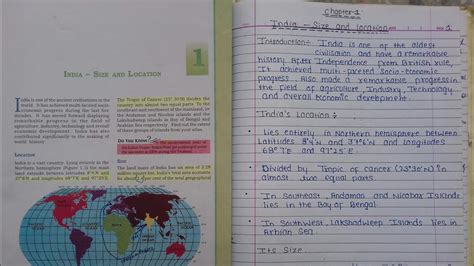 1
INDIA – SIZE AND LOCATION
India is one of the ancient civilisations in the
world. It has achieved multi-faceted socio-
economic progress during the last five
decades. It has moved forward displaying
remarkable progress in the field of
agriculture, industry, technology and overall
economic development. India has also
contributed significantly to the making of
world history.
LOCATION
India is a vast country. Lying entirely in the
Northern hemisphere (Figure 1.1) the main
land extends between latitudes 8°4'N and
37°6'N and longitudes 68°7'E and 97°25'E.
The Tropic of Cancer (23° 30'N) divides the
country into almost two equal parts. To the
southeast and southwest of the mainland, lie
the Andaman and Nicobar islands and the
Lakshadweep islands in Bay of Bengal and
Arabian Sea respectively. Find out the extent
of these groups of islands from your atlas.
DO YOU KNOW?
SIZE
The land mass of India has an area of 3.28
million square km. India's total area accounts
for about 2.4 per cent of the total geographical
Chapter-1
India - Size and Location
1
Introduction:- India is one of the oldest
civilisation and have a remarkable
history. After Independence from British rule,
It achieved multi-faceted Socio-economic
progress. Also made a remarkable progress in
the field of agriculture, Industry, Technology
and overall Economic development.
India's Location:-
Lies entirely in Northern hemisphere between
Latitudes 8°4'N and 37°6'N and longitudes
68°7'E and 97°25'E.
Divided by Tropic of Cancer (23°30'N) in
almost two equal parts.
In Southeast, Andaman and Nicobar Islands
lies in the Bay of Bengal.
In Southwest, Lakshadweep Islands lies in
Arbian Sea.
Its Size